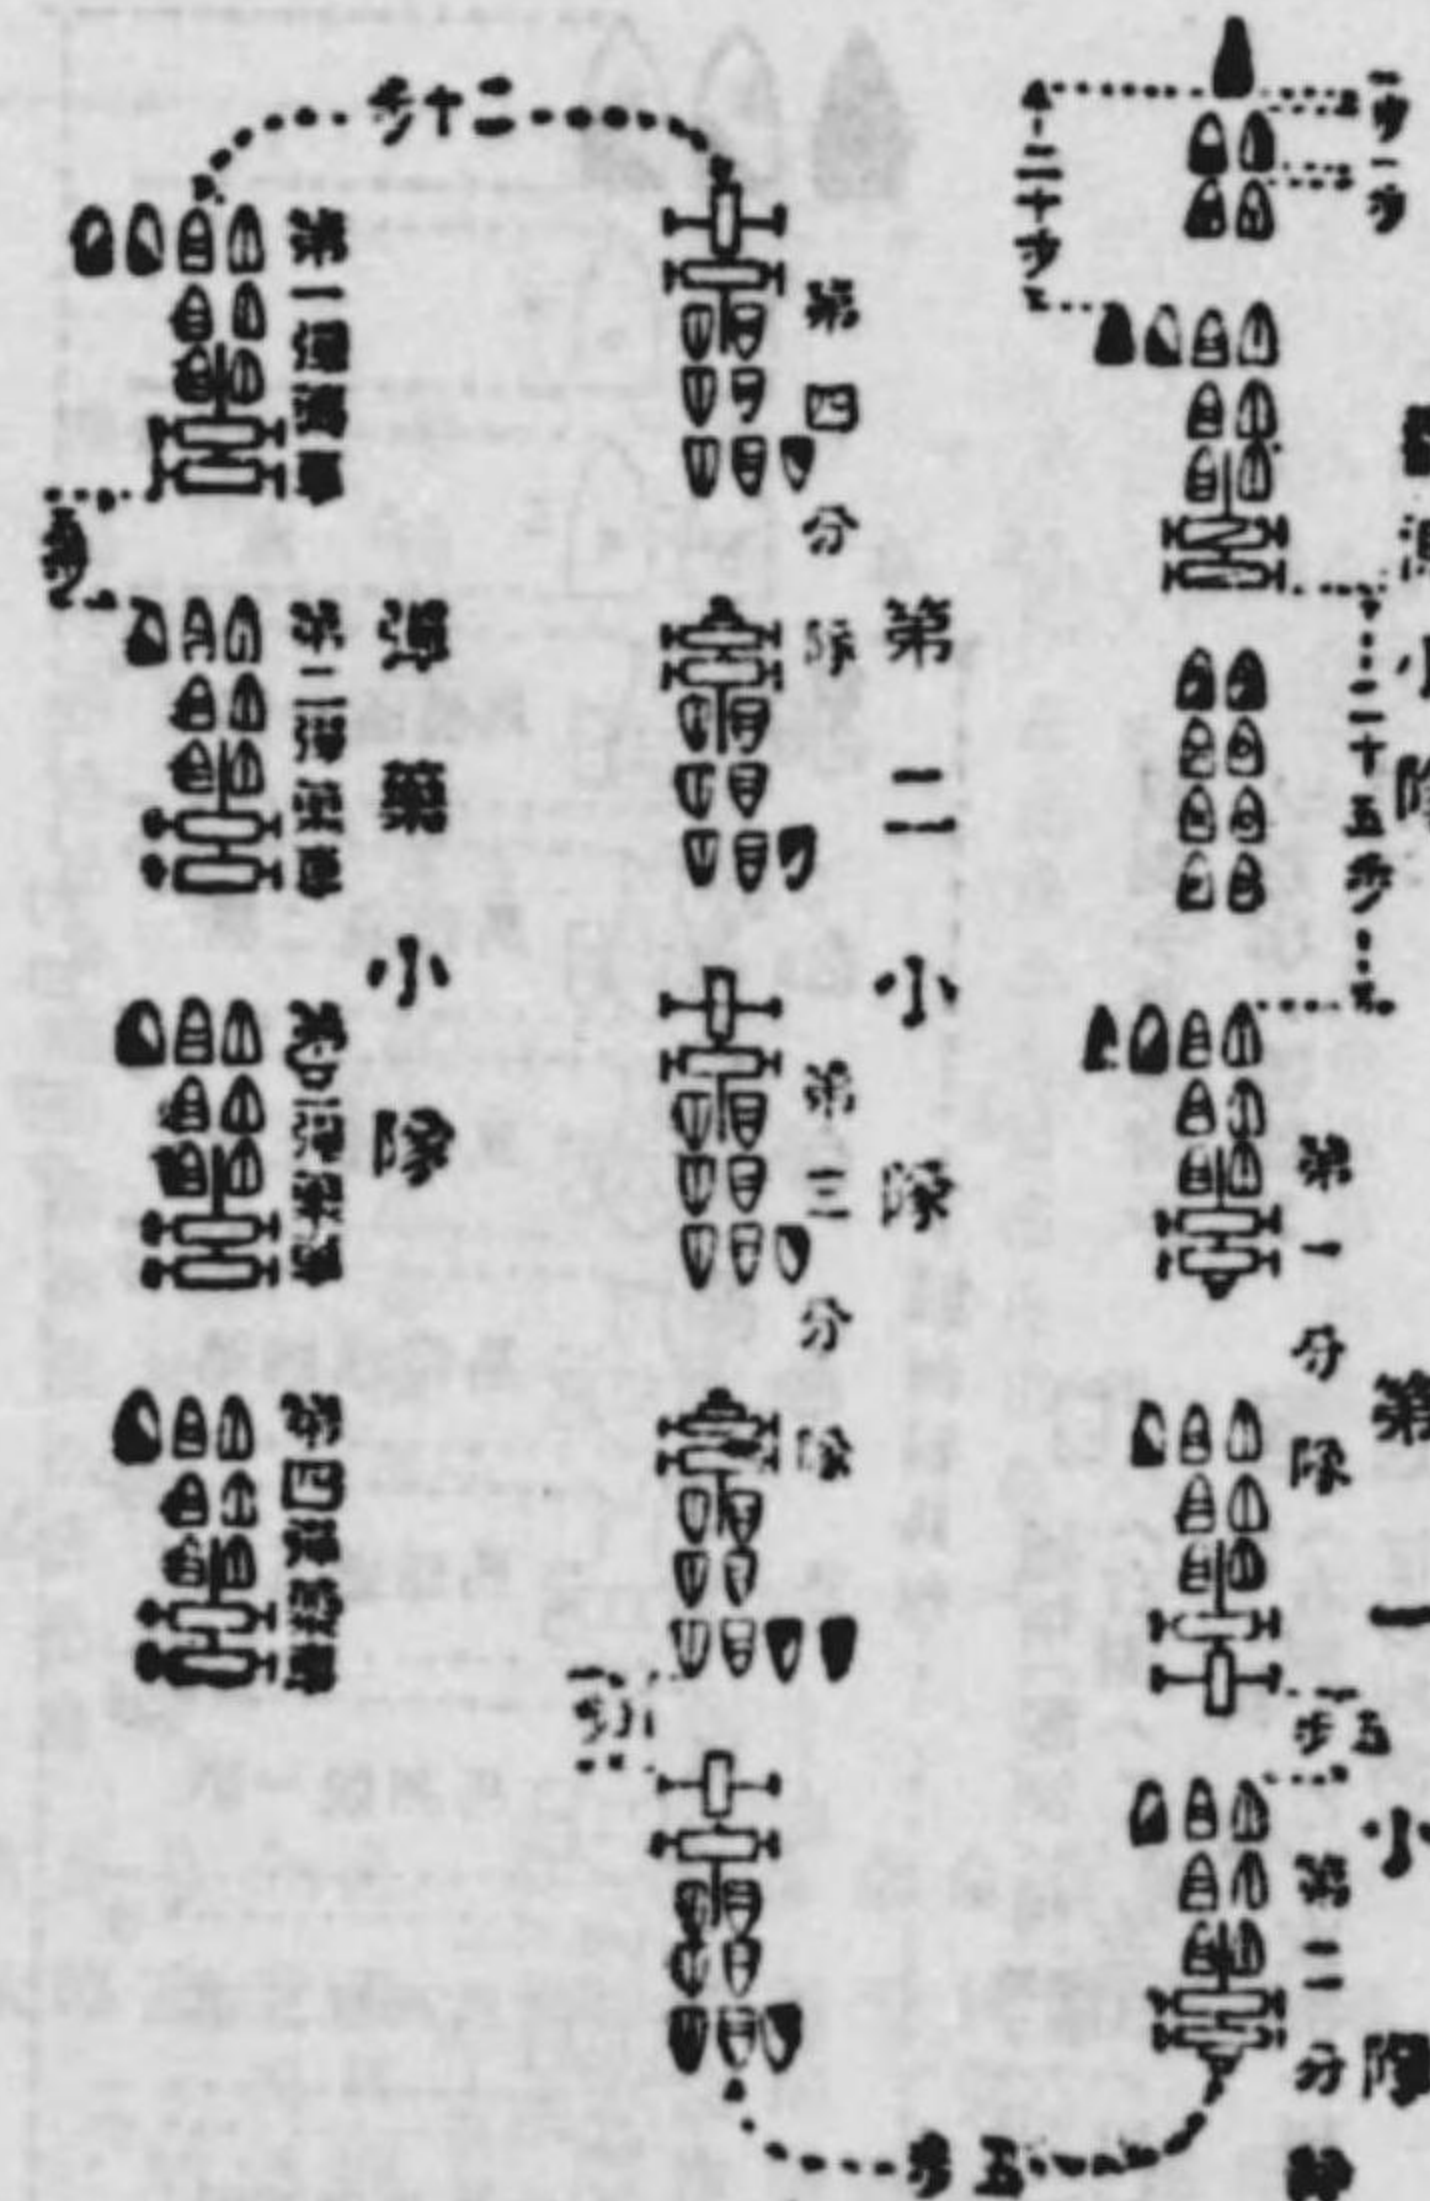 一步
一步
二十步
二十五步
第一小隊
第一分隊
五步
第二分隊
五步
第二小隊
第四分隊
第三分隊
二十步
彈藥小隊
第一彈藥車
第二彈藥車
第三彈藥車
第四彈藥車